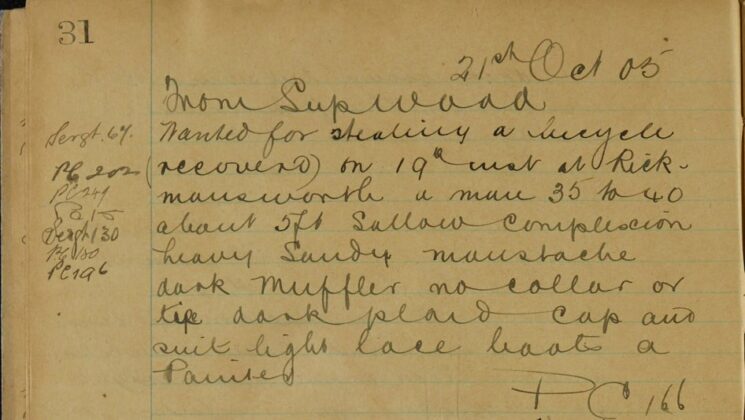 31
21st Oct 05
From Sup Wood
Sergt. 67.
PC 202
PC 249
Sergt 130
PC 180
PC 196
Wanted for stealing a bicycle
(recovered) on 19th inst at Rick-
mansworth a man 35 to 40
about 5ft Sallow Complexion
heavy Sandy moustache
dark Muffler no collar or
tie dark plaid cap and
suit light lace boots a
Painter
PC 166